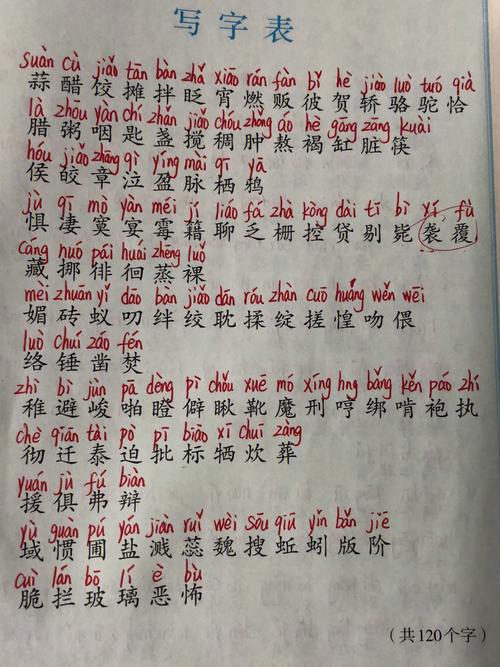 写字表
suàn cù jiǎo tān bàn zhǎ xiāo rán fàn bǐ hè jiào luò tuó qià
蒜醋饺摊拌眨宵燃贩彼贺轿骆驼恰
là zhōu yàn chí zhǎn jiǎo chóu zhǒng áo hè gāng zāng kuài
腊粥咽匙盏搅稠肿熬褐缸脏筷
hóu jiǎo zhāng qì yíng mài qī yā
侯皎章泣盈脉栖鸦
jù qī mò yàn méi jí liáo fá zhà kòng dài tī bì xí fù
惧凄寞宴霉籍聊乏栅控贷剔毙袭覆
cáng nuó pái huái zhēng luǒ
藏挪徘徊蒸裸
mèi zhuān yǐ dāo bàn jiǎo dān róu zhàn cuō huáng wěn wēi
媚砖蚁叨绊绞耽揉绽搓惶吻偎
luò chuí záo fén
络锤凿焚
zhì bì jùn pā dèng pì chǒu xuē mó xíng hng bǎng kěn páo zhí
稚避峻啪瞪僻瞅靴魔刑哼绑啃袍执
chè qiān tài pò pī biāo xī chuī zàng
彻迁泰迫批标牺炊葬
yuán jù fú biàn
援俱弗辩
yù guàn pǔ yán jiàn ruǐ wèi sōu qiū yǐn bǎn jiē
域惯圃盐溅蕊魏搜蚯蚓版阶
cuì lán bō lí è bù
脆拦玻璃恶怖
（共120个字）